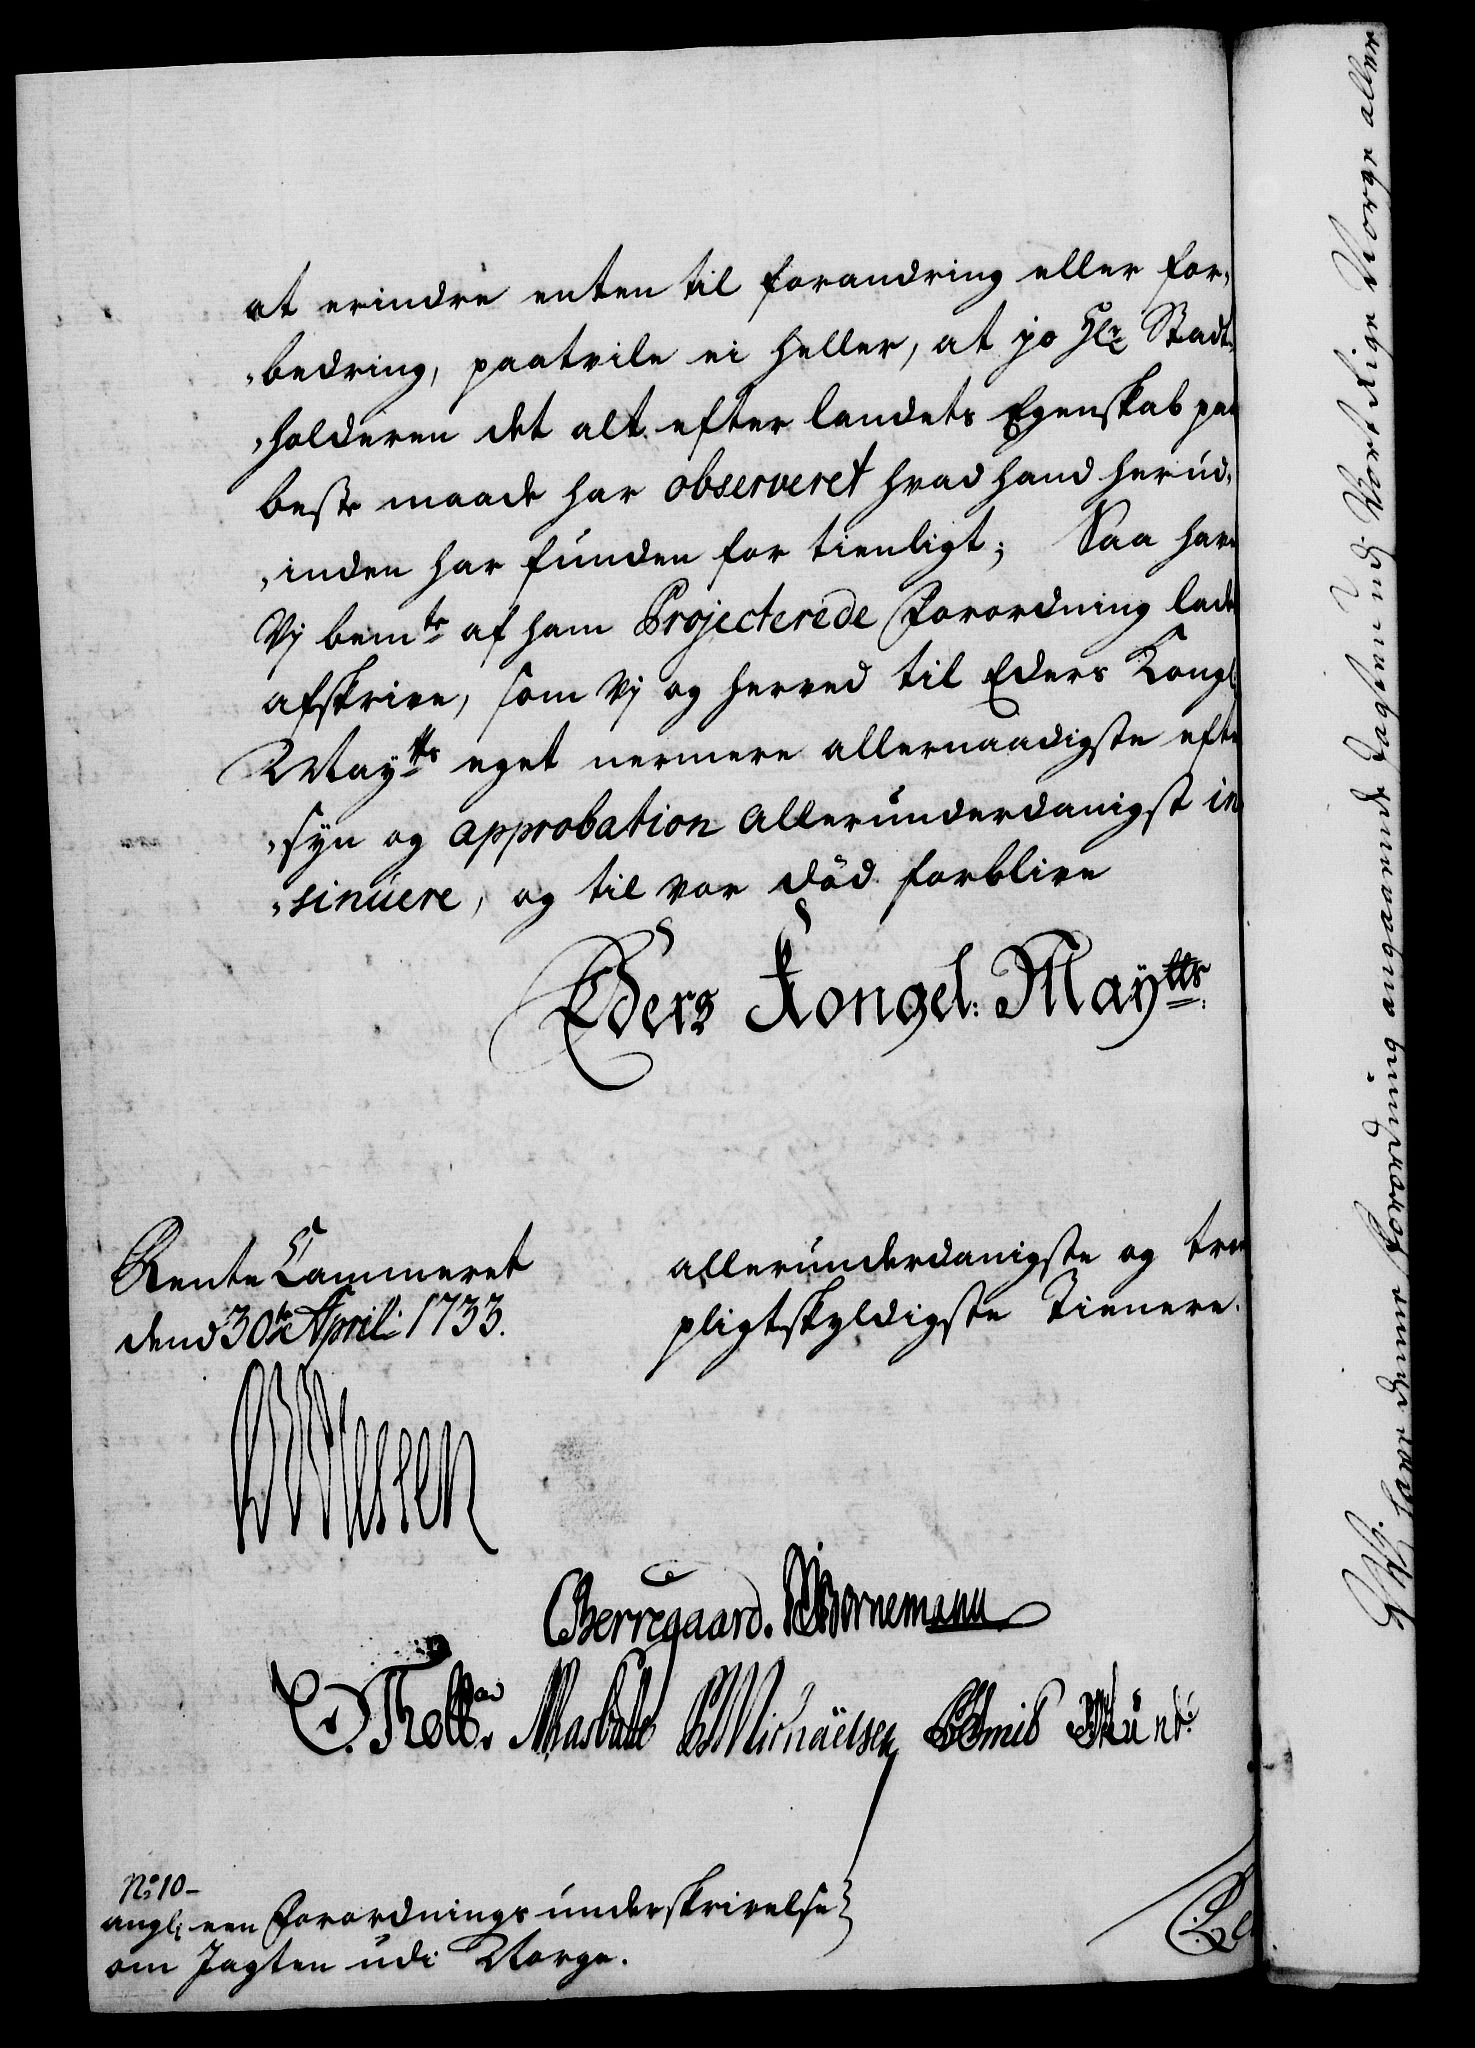 at erindre enten til forandring eller for,
„bedring, paatvile ei heller, at jo Hr: Stadt,
„holderen det alt efter landets Egenskab paa
beste maade har observeret hvad hand herud,
„inden har funden for tienligt; Saa have
Vj bemte af ham Projecterede Forordning lade
afskrive, som Vj og herved til Eders Kongl:
Maytts eget nermere allernaadigste efter
„syn og approbation allerunderdanigst in
„sinuere, og til vor død forblive
Eders Kongel: Maytts:
Rente Cammeret
dend 30te April: 1733.
allerunderdanigste og troe
pligtskyldigste Tienere.
Berregaard. Bornemann
Michaëlsen
No: 10-
angl: een Forordnings underskrivelse
om Jagten udi Norge.
Vii har denne Forordning angaaende Jagten udj Vort Rige Norge aller